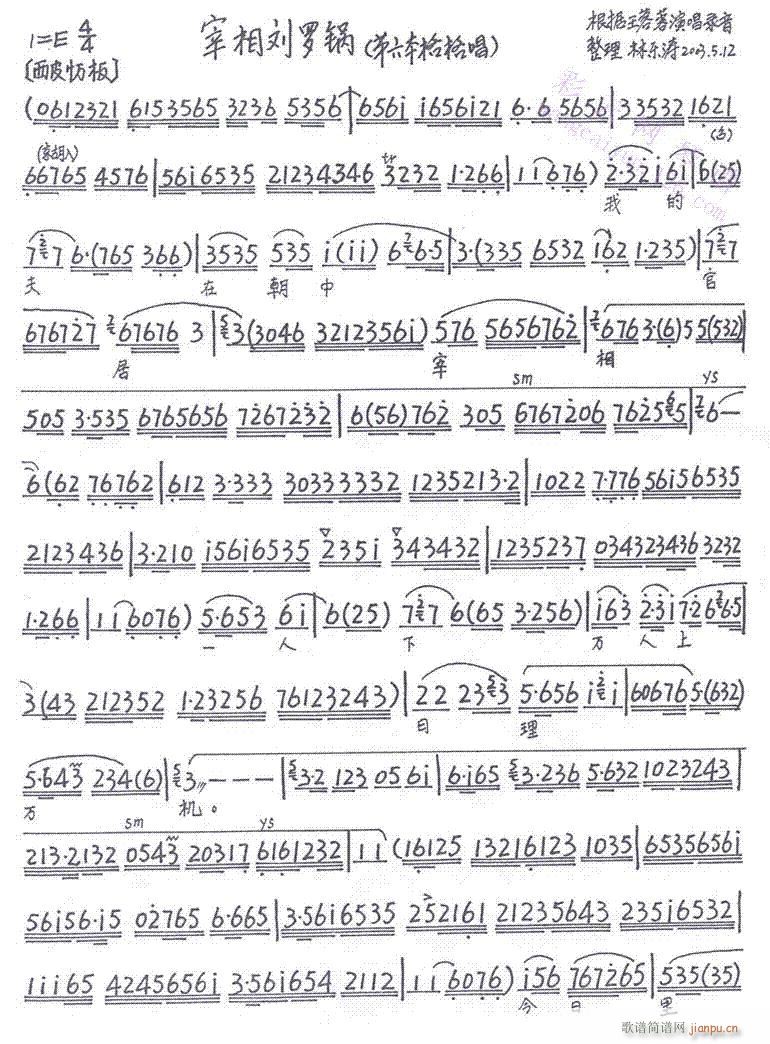 1=E 4/4
宰相刘罗锅(第六本格格唱)
根据王蓉蓉演唱录音
整理 林乐涛 2003.5.12
[西皮慢板]
(0612321 6153565 3236 5356 | 656i i656i21 6·6 5656 | 33535 1621
667665 4576 | 56i6535 21234346 3232 1·266 | 1 i i 676) 2·32i 6i | 6(25)
我 的
7 7 6·(765 366) | 3535 535 i(ii) 6 6·5 | 3·(335 6532 i62 1·235) | 7 7
夫 在 朝 中 官
676727 67676 3 | 3(3046 3212356i) 576 5656762 | 676 3·(6) 5 5(532)
居 宰 相
sm ys
505 3·535 6765656 7267232 | 6(56)762 305 6767206 76255 | 6—
6(62 76762 | 612 3·333 30333332 1235213·2 | 1022 7·776 56i56535
2123436 | 3·210 i56i6535 235i 343432 | 1235237 034323436 3232
1·266 | 1 i 6076) 5·653 6i | 6(25) 7 7 6(65 3·256) | i63 2·3i 7·26 6·5
一 人 下 万 人 上
3(43 212352 1·23256 76123243) | 22 233 5·656 i i | 60676 5·(632)
日 理
5·643 234(6) | 3 — — — | 3·2 123 056i | 6·i65 3·236 5·632 1023243
万 机。
sm ys
213·2132 0543 20317 6161232 | 1 i (16125 13216123 1035 | 6535656i
56i56·i5 02765 6·665 | 3·56i6535 252161 21235643 235i6532
1ii65 4245656i 3·56i654 2112 | 1 i 6076) i56 767265 | 535(35)
今 日 里
歌谱简谱网
jianpu.cn